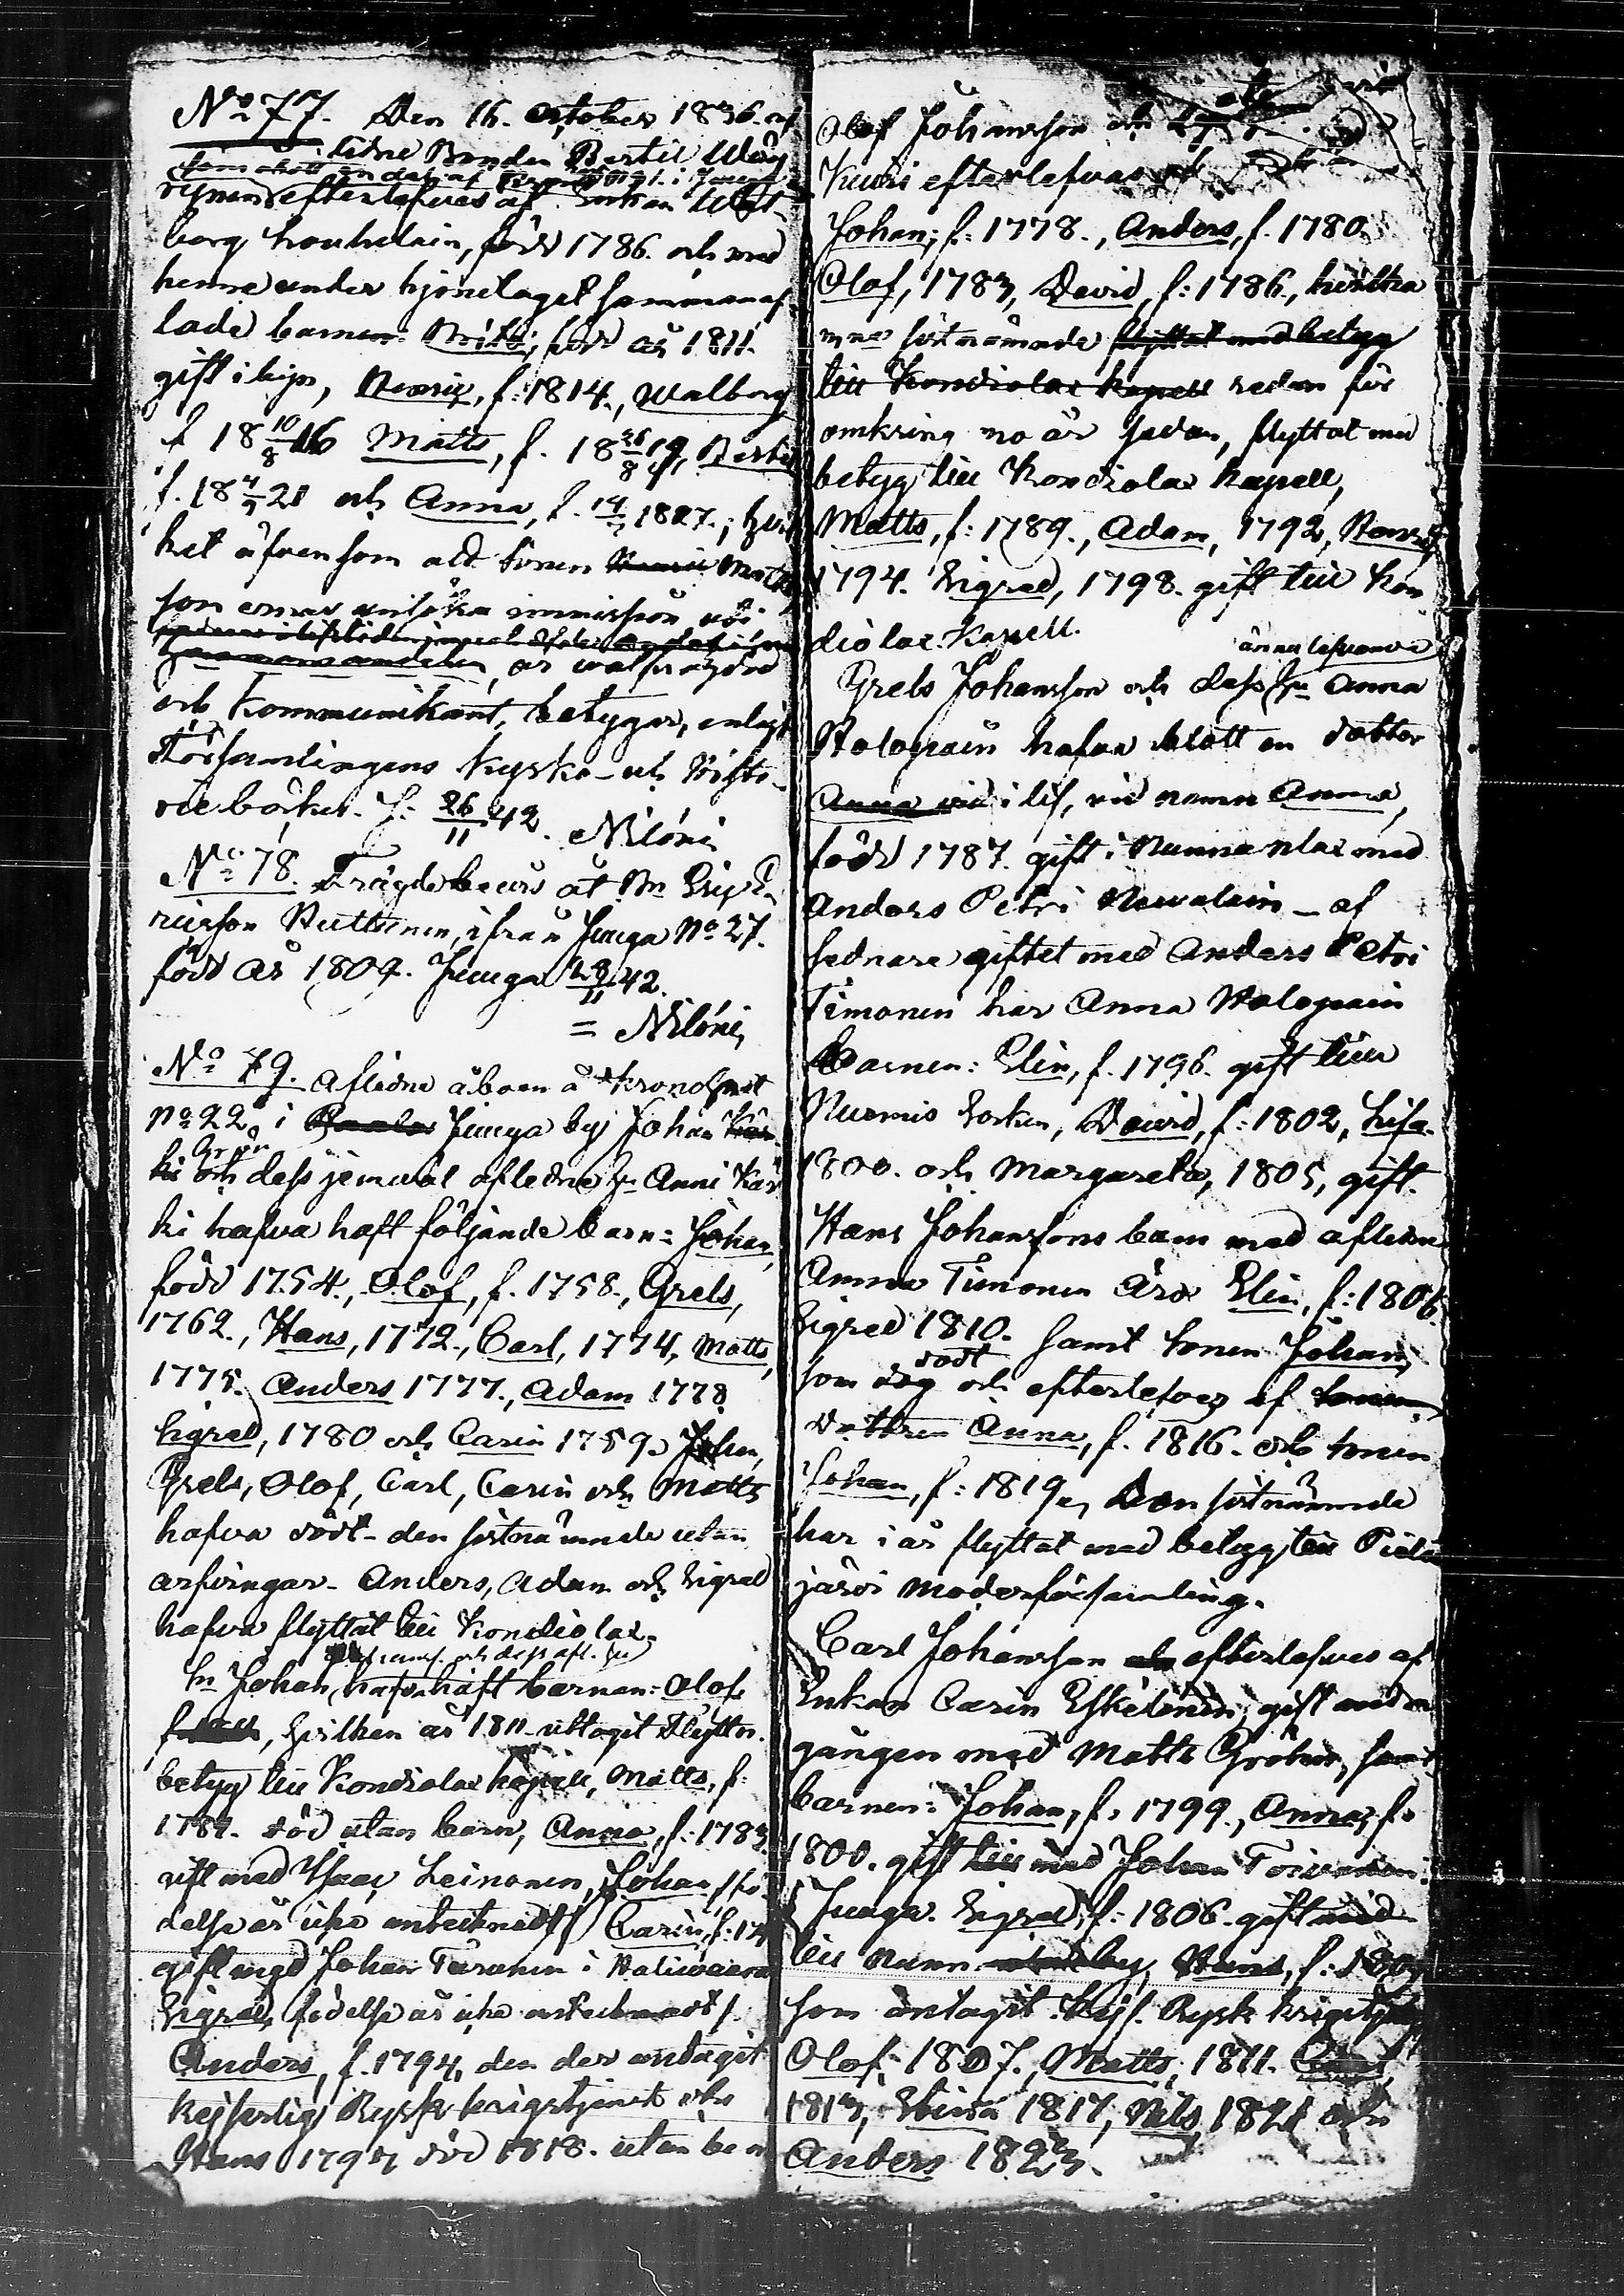 No 77. Den 16. October 1836. af
lidne Bonden Bertil
efterlefves af Enkan
borg houhelain, född 1786. och med
henne under hjonelaget sammanaf
lade barnen: Brita, född år 1811.
gift i byn, Henric, f: 1814., Walborg
f 18 10/8 16 Matts, f. 18 26/8 19, Bertil
f. 18 4/9 21 och Anna, f. 14/ 1827.; hvil
ket äfven som att sonen Matts
som ernar ansöka immission
är wälfrägdad
och Kommunikant, betygar, enligt
Församlingens Kyrko- och Skrifte-
rie böcker. J: 26/11 42. Nilóni
No 78. Frägdebevis åt Bn Eric E-
ricsson Huttunen, ifrån Juuga No 27.
född år 1809. Juuga 28/11 42.
= Nilóni,
No 79. Aflidne åboen å Kronohemt
No 22. i Juuga by Johan
och dess jemwäl afledne Hu Anni Kär
ki hafva haft följande barn: Johan,
född 1754., Olof, f. 1758., Grels,
1762., Hans, 1772., Carl, 1774, Matts,
1775. Anders 1777., Adam 1778.
Sigred, 1780 och Carin 1759. Johan,
Grels, Olof, Carl, Carin och Matts
hafva dödt - den sistnämnde utan
arfvingar - Anders, Adam och Sigred
hafva flyttat till Kondiolax.
och dess afl. Hu
Bn Johan, hafva haft barnen: Olof
hvilken år 1811 uttagit Flyttn.
betyg till Kondiolax kapell, Matts, f:
1781. död utan barn, Anna, f: 1783
gift med Isaac Leinonen, Johan /:fö
delse år icke antecknadt:/ Carin, f: 17
gift med Johan Turunen i Haliwaara
Sigred, födelse år icke antecknadt/.
Anders, f. 1794, den der antagit
kejserlig Rysk krigstjenst och
Hans 1797, död 1818. utan barn
Olof Johansson och
Kuuri efterlefvas af
Johan; f: 1778., Anders, f. 1780.
Olof, 1783, David, f: 1786., hvilka
sistnämnde flyttat med betyg
till Kondiolax kapell redan för
omkring 20 år sedan, flyttat med
betyg till Kondiolax kapell,
Matts, f: 1789., Adam, 1792, Henric,
1794. Sigred, 1798. gift till Kon
diolax Kapell.
ännu lefvande
Grels Johansson och dess Hu Anna
Holopain hafva blott en dotter
Anna vid i lif, vid namn Anna,
född 1787. gift i Nunnanlax med
Anders Petri Newalain - af
sednare giftet med Anders Petri
Timonen har Anna Holopain
barnen: Elin, f. 1796. gift till
Nurmis Socken, David, f: 1802, Lisa
1800. och Margareta, 1805, gift.
Hans Johanssons barn med aflidne
Anna Timonen äro Elin, f: 1806.
Sigred 1810. samt sonen Johan,
som dödt och efterlefves af
dottren Anna, f. 1816. och sonen
Johan, f: 1819, Den sistnämnde
har i år flyttat med betyg till Pielis
järvi moderförsamling.
Carl Johansson efterlefves af
Enkan Carin Eskelinen, gift andra
gången med Matts Gröhn, samt
barnen: Johan, f. 1799., Anna, f.
1800. gift med Johan Toivanen
i Juuga. Sigred, f: 1806. gift
till Nurm by, Hans, f:
som antagit Kejs. Rysk krigstjenst
Olof. 1807., Matts, 1811.
1813, Stina 1817, Nils 1821 och
Anders 1823.